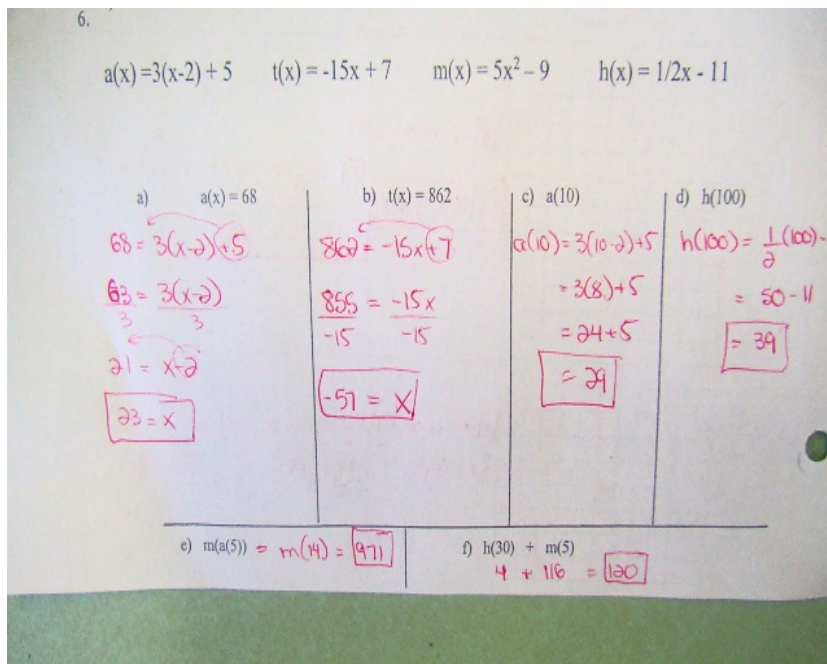 6.
a(x) =3(x-2) + 5 t(x) = -15x + 7 m(x) = 5x² – 9 h(x) = 1/2x - 11
a) a(x) = 68
68 = 3(x-2)+5
63 = 3(x-2)
3 3
21 = x-2
23 = x
b) t(x) = 862
862 = -15x+7
855 = -15x
-15 -15
-57 = x
c) a(10)
a(10) = 3(10-2)+5
= 3(8)+5
= 24+5
= 29
d) h(100)
h(100) = 1/2(100)-
= 50-11
= 39
e) m(a(5)) = m(14) = 971
f) h(30) + m(5)
4 + 116 = 120